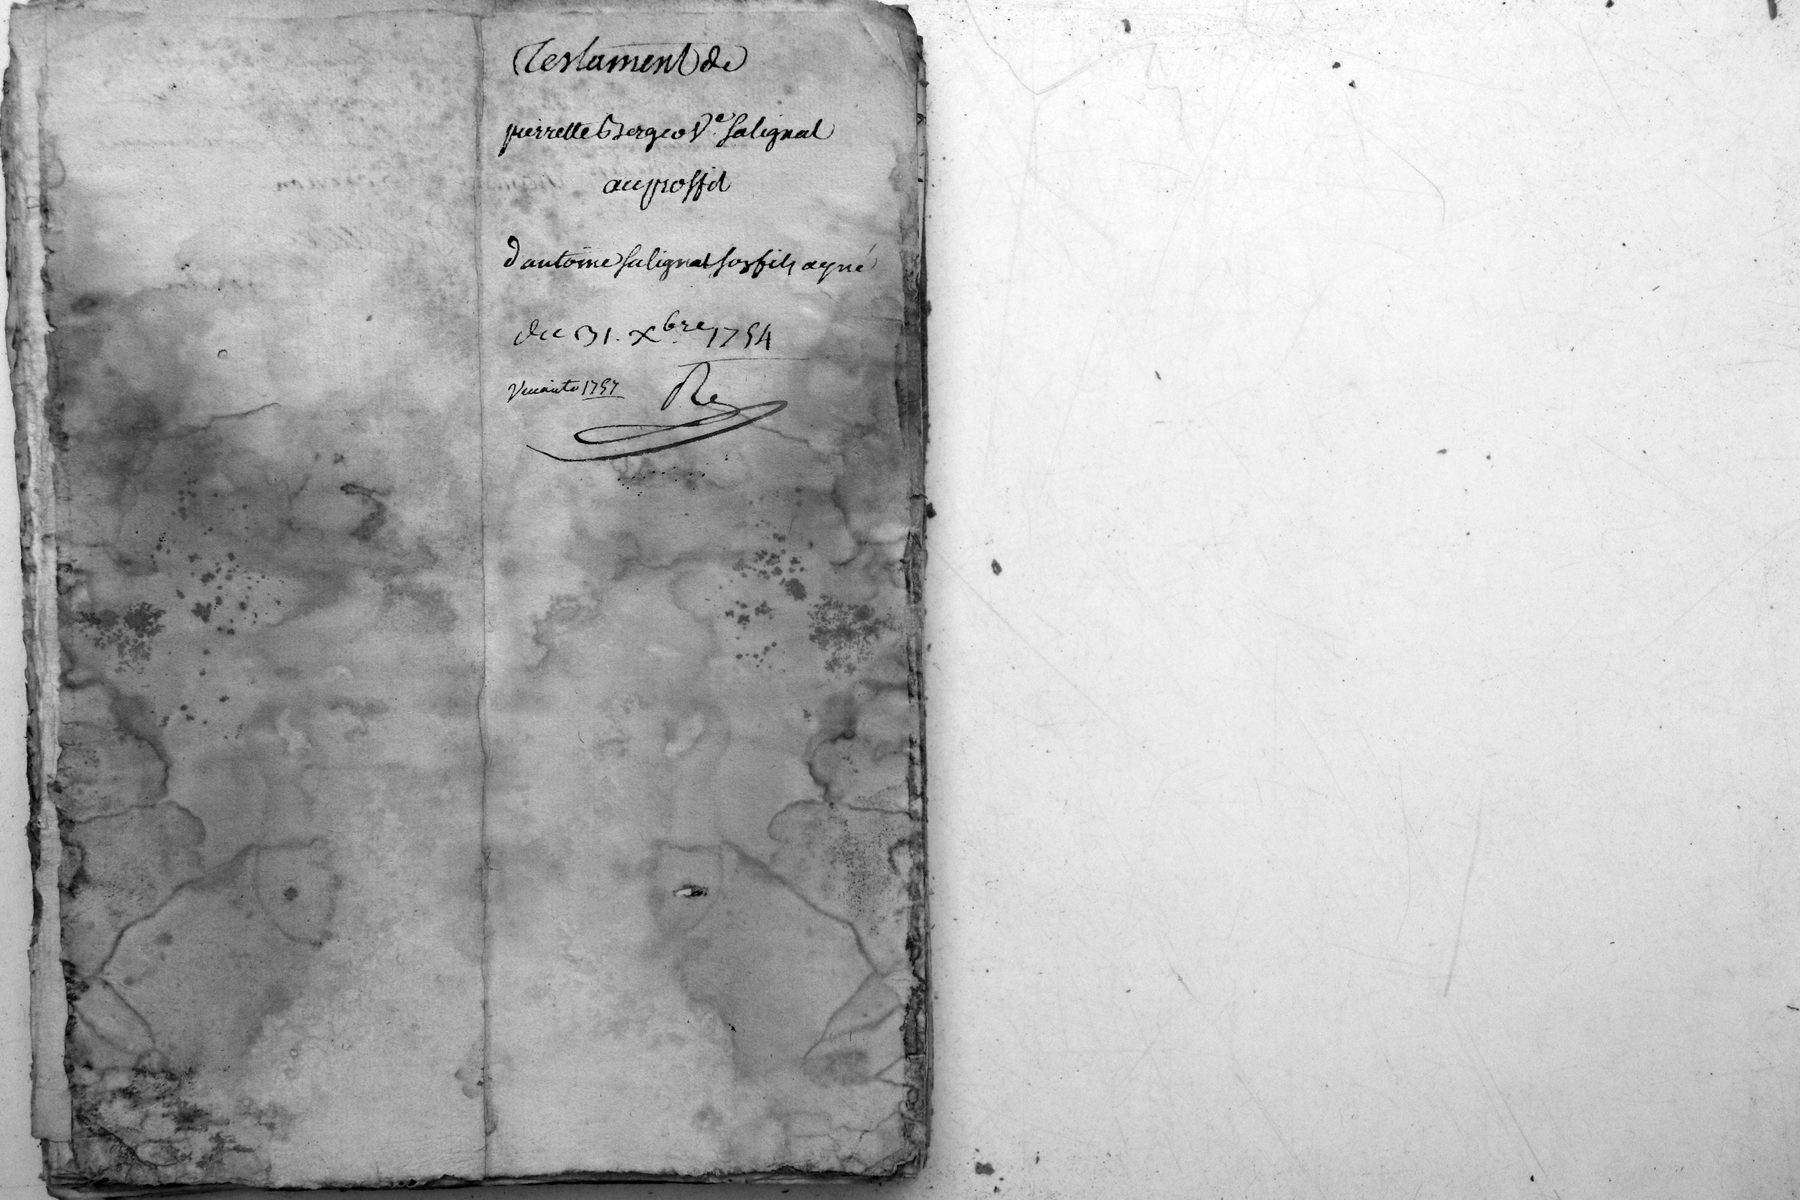 Testament de
pierrette Bergeo Ve Salignat
au proffit
d'antoine Salignat son fils ayné
du 31. Xbre 1754
1757